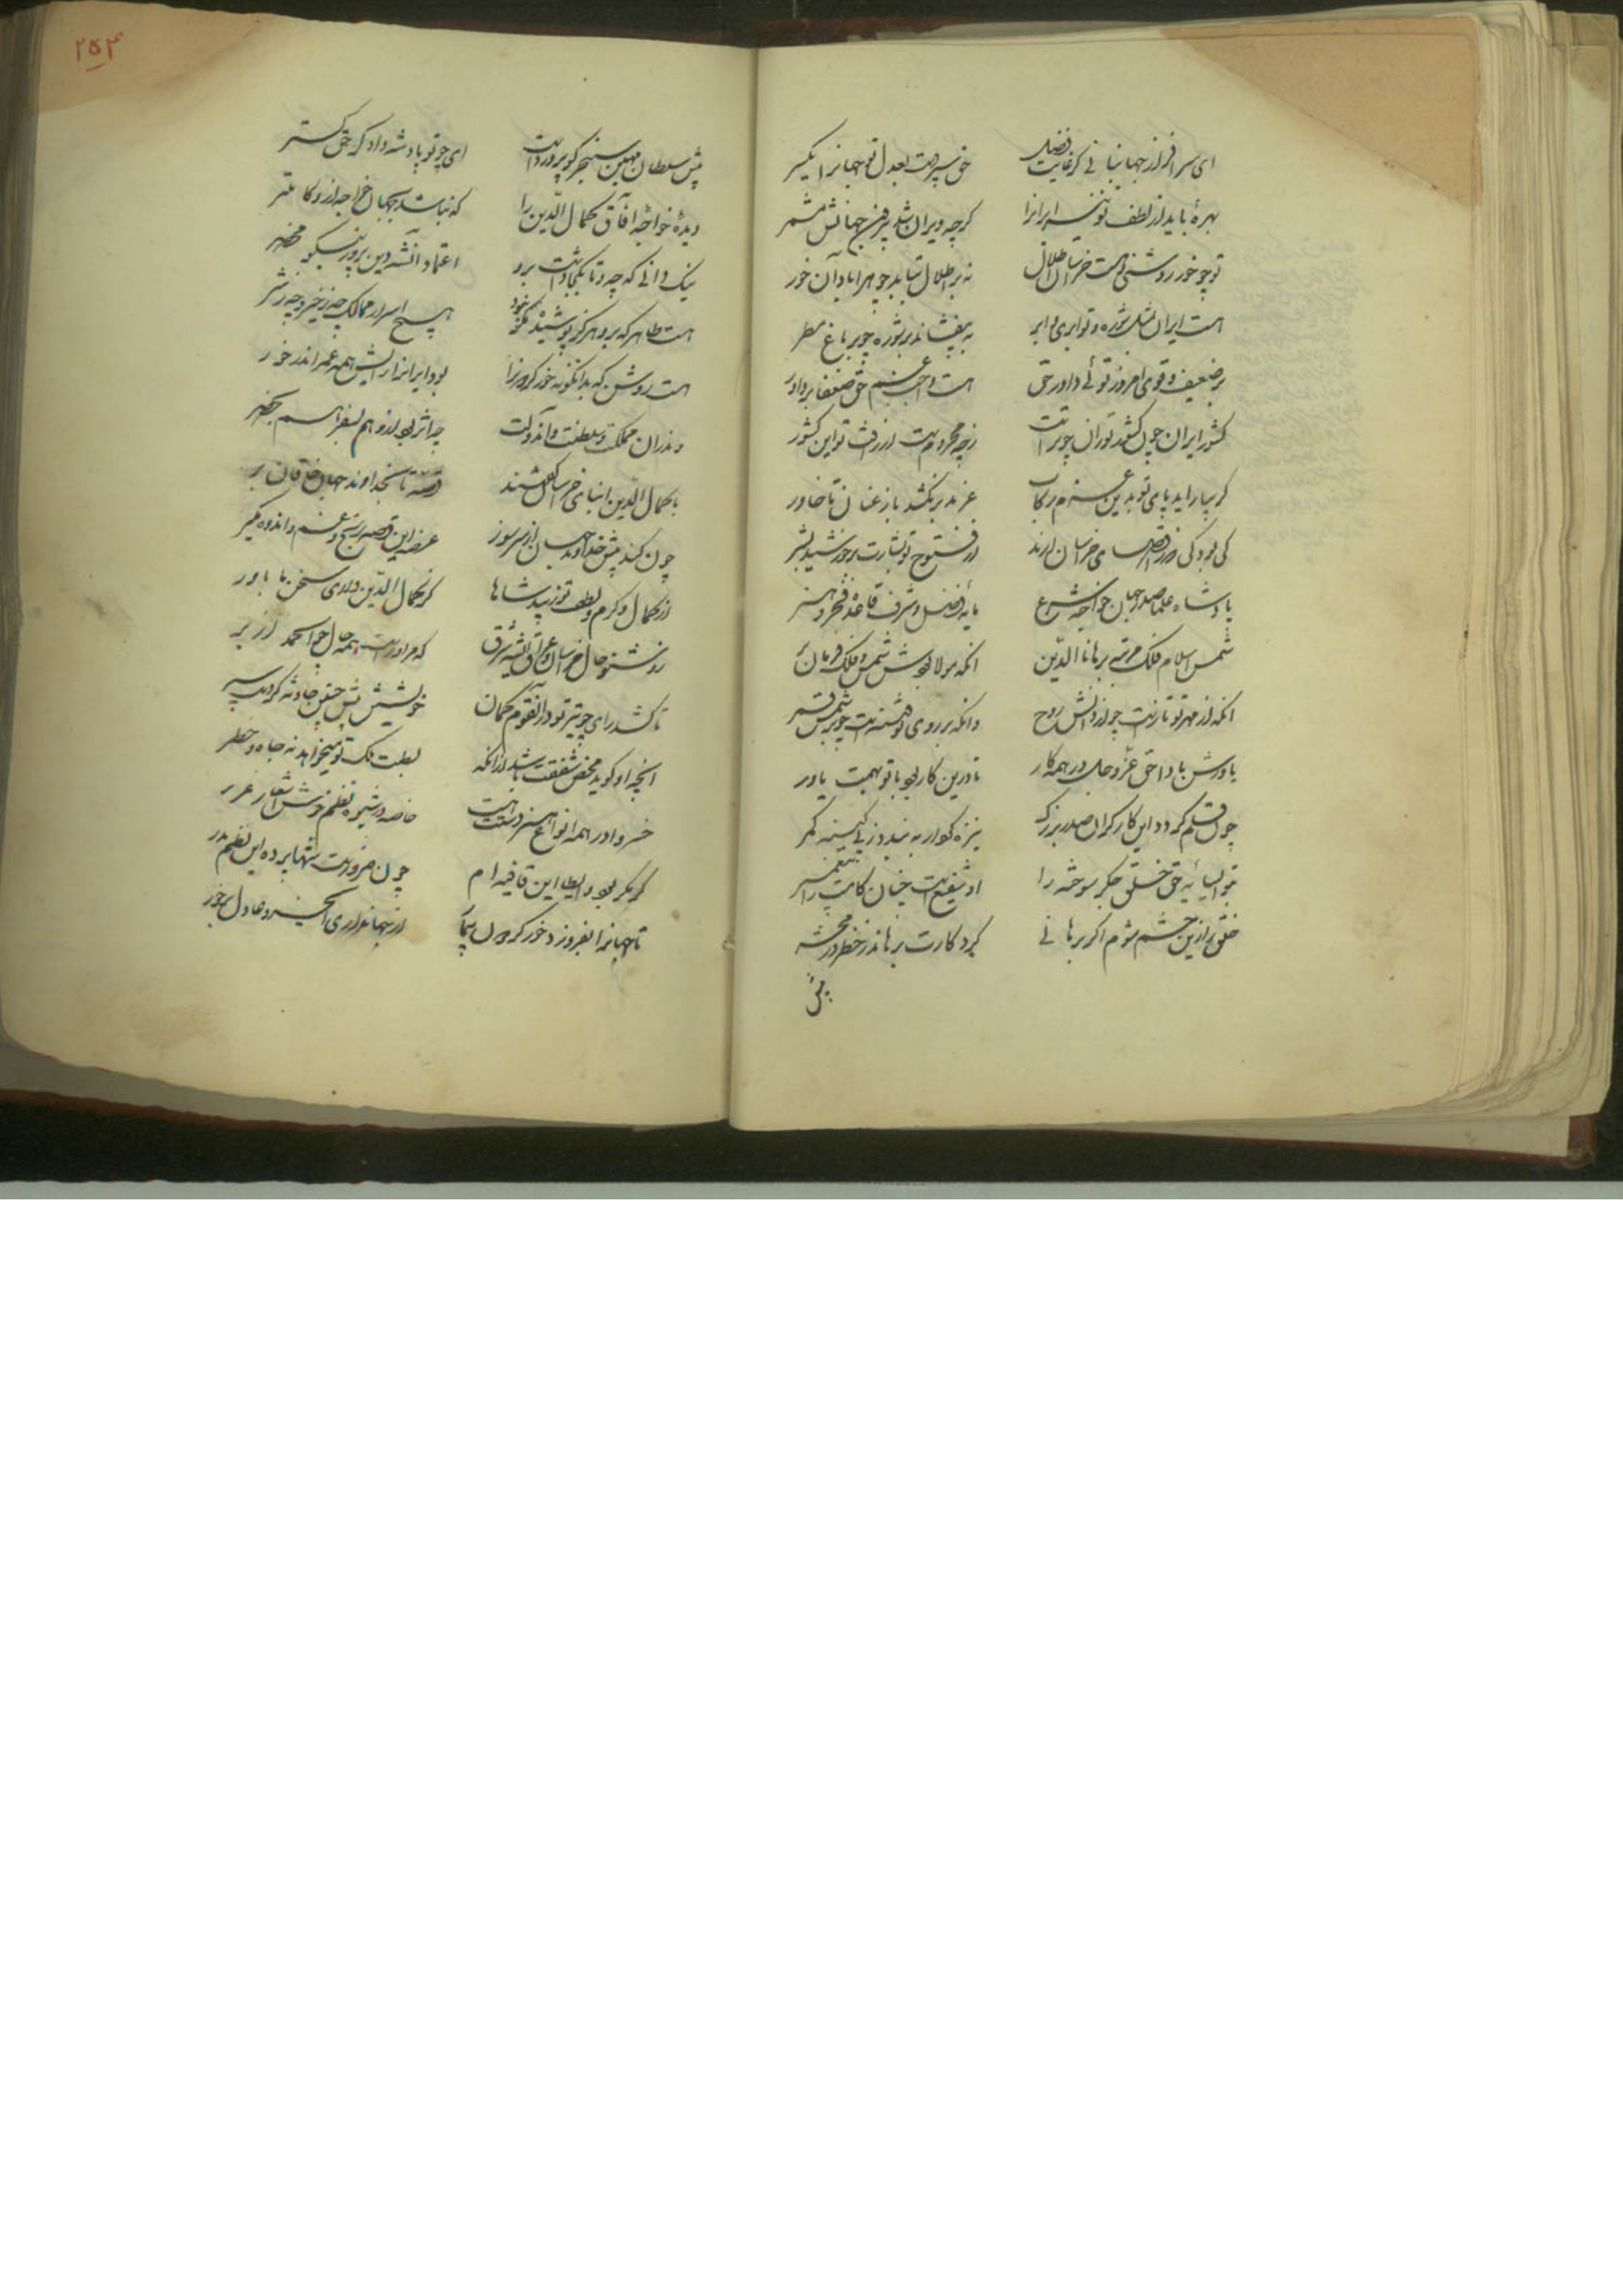 ای سرافراز جهانبانی کز غایت فضل    حق سپردست بعدل تو جهانرا یکسر
بهرهٔ باید از لطف تو نیز ایرانرا    کرچه ویران شد بیرون ز جهانش مشمر
تو چو خور روشنی و هست خراسان اطلال    نه بر اطلال بتابد چو بر آبادان خور
هست ایران بمثل شوره و تو ابری و ابر    نه بیفشاند بر شوره چو بر باغ مطر
بر ضعیف و قوی امروز توئی داور حق    هست واجب غم حق ضعفا بر داور
کشور ایران چون کشور توران چو تراست    از چه محرومست از رافت تو این کشور
کر نیاراید پای تو بدین عزم رکاب    غز مدبر نکشد باز عنان تا خاور
کی بود کی که ز اقصای خراسان آرند    از فتوح تو بشارت بر خورشید بشر
پادشاه علما صدر جهان خواجه شرع    مایهٔ فضل و شرف قاعدهٔ فخر و هنر
شمس اسلام فلک مرتبه برهان الدین    آنکه مولا بود شمس و فلک فرمان بر
آنکه از مهر تو تازه است چو از دانش روح    وانکه بر روی تو فتنه است چو بر شمس قمر
یاورش بادا حق عز و جل در همه کار    تا درین کار بود با تو بهمت یاور
چون قلم کردد این کار کر آن صدر بزرک    نیزه کردار ببندد ز پی کینه کمر
بتو ای سایهٔ حق خلق جکر سوخته را    او شفیعست چنان کامت را پیغمبر
خلق را زین حشم شوم اکر برهانی    کردکارت برهاند ز خطر در محشر
پیش
۲۵۴
پیش سلطان جهان سنجر کو پروردت    ای چو تو پادشه دادکر حق کستر
دیدهٔ خواجهٔ آفاق کمال الدین را    که نباشد بجهان خواجه ازو کاملتر
نیک دانی که چه و تا بکجا داشت برو    اعتماد آن شه دین پرور نیکو محضر
هست ظاهر که برو هرکز پوشیده نبود    هیچ اسرار ممالک چه ز خیر و چه ز شر
هست روشن که بدانکونه که خور کردونرا    بود ایرانرا رایش همه عمر اندر خور
واندران مملکت و سلطنت و آن دولت    چه اثر بود ازو هم بسفر هم بحضر
با کمال الدین ابنای خراسان کفتند    قصه تا بخداوند جهان خاقان بر
چون کند پیش خداوند جهان از سر سوز    عرضه این قصه رنج و غم و اندوه و فکر
از کمال کرم و لطف تو زیبد شاها    کز کمال الدین داری سخن ما باور
زو شنو حال خراسان و عراق ای شه شرق    که مر او راست همه حال چو الحمد از بر
تا کشد رای چو تیر تو در آن قوم کمان    خویشتن پیش چنین حادثه کردست سپر
آنچه او کوید محض شفقت باشد از آنکه    بسطت ملک تو میخواهد نه جاه و خطر
خسروا در همه انواع هنر دستت هست    خاصه در شیوه نظم خوش و اشعار غرر
کر مکرر بود ایطا این قافیه ام    چون ضروریست شها پرده این نظم مدر
تا جهانرا بفروزد خور کردون پیما    از جهانداری ای خسرو عادل برخور